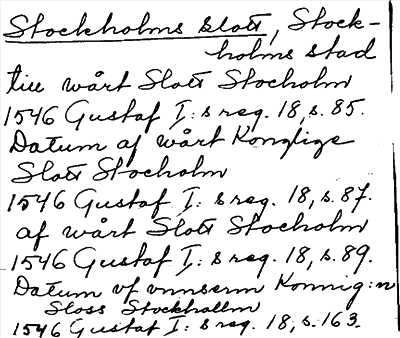 Stockholms slott, Stock-
holms stad
till wårt Slott Stocholm
1546 Gustaf I: s reg. 18, s. 85.
Datum af wårt Konglige
Slott Stocholm
1546 Gustaf I: s reg. 18, s. 87.
af wårt Slott Stocholm
1546 Gustaf I: s reg. 18, s. 89.
Datum vf vnnserm Konnig:n
Sloss Stockhallm
1546 Gustaf I: s reg. 18, s. 163.